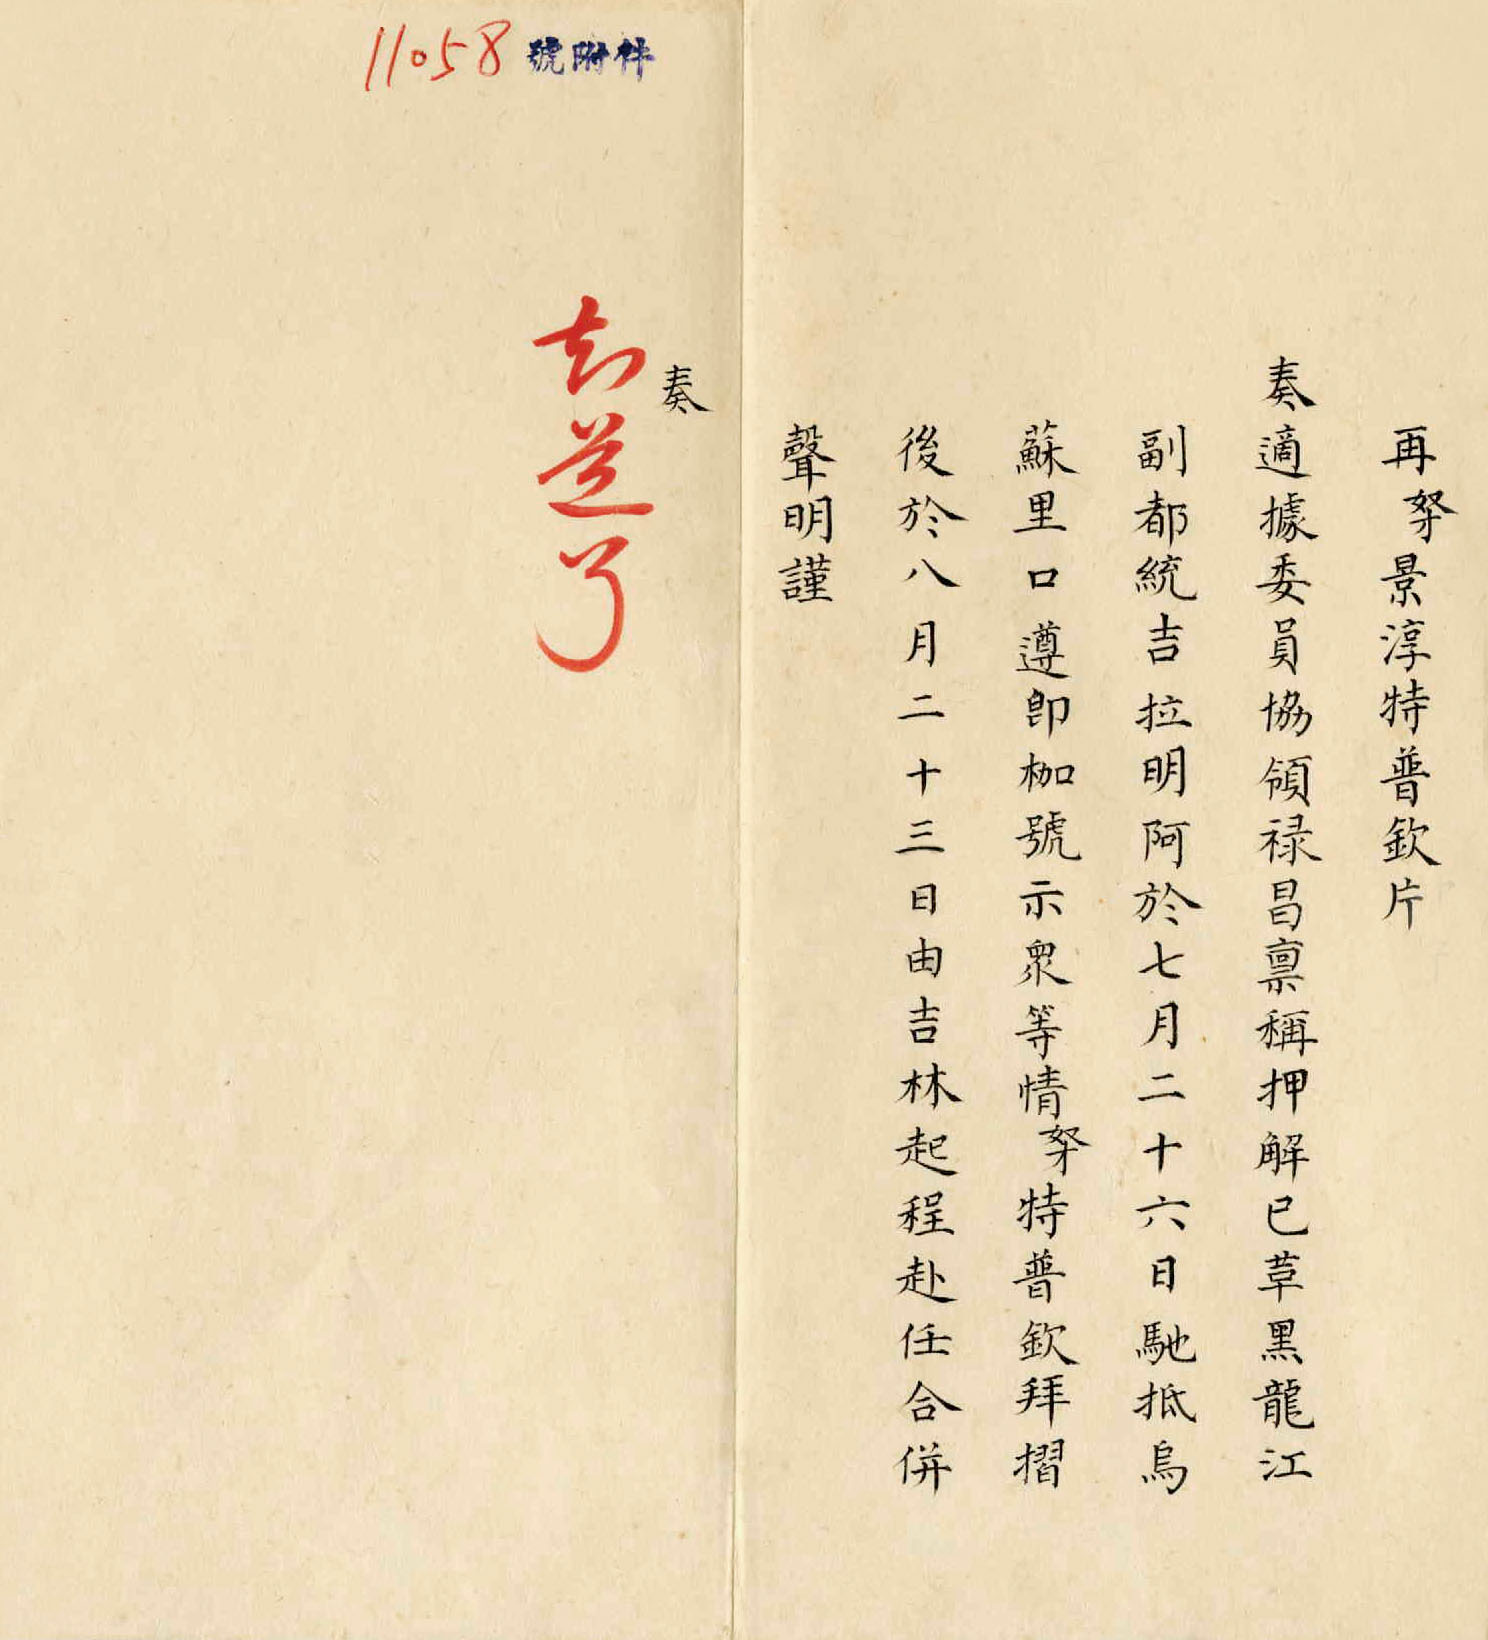 再奴才景淳特普欽片
奏適據委員協領禄昌稟稱押解已革黑龍江
副都統吉拉明阿於七月二十六日馳抵烏
蘇里口遵即枷號示衆等情奴才特普欽拜摺
後於八月二十三日由吉林起程赴任合併
聲明謹
奏
知道了
11058號附件